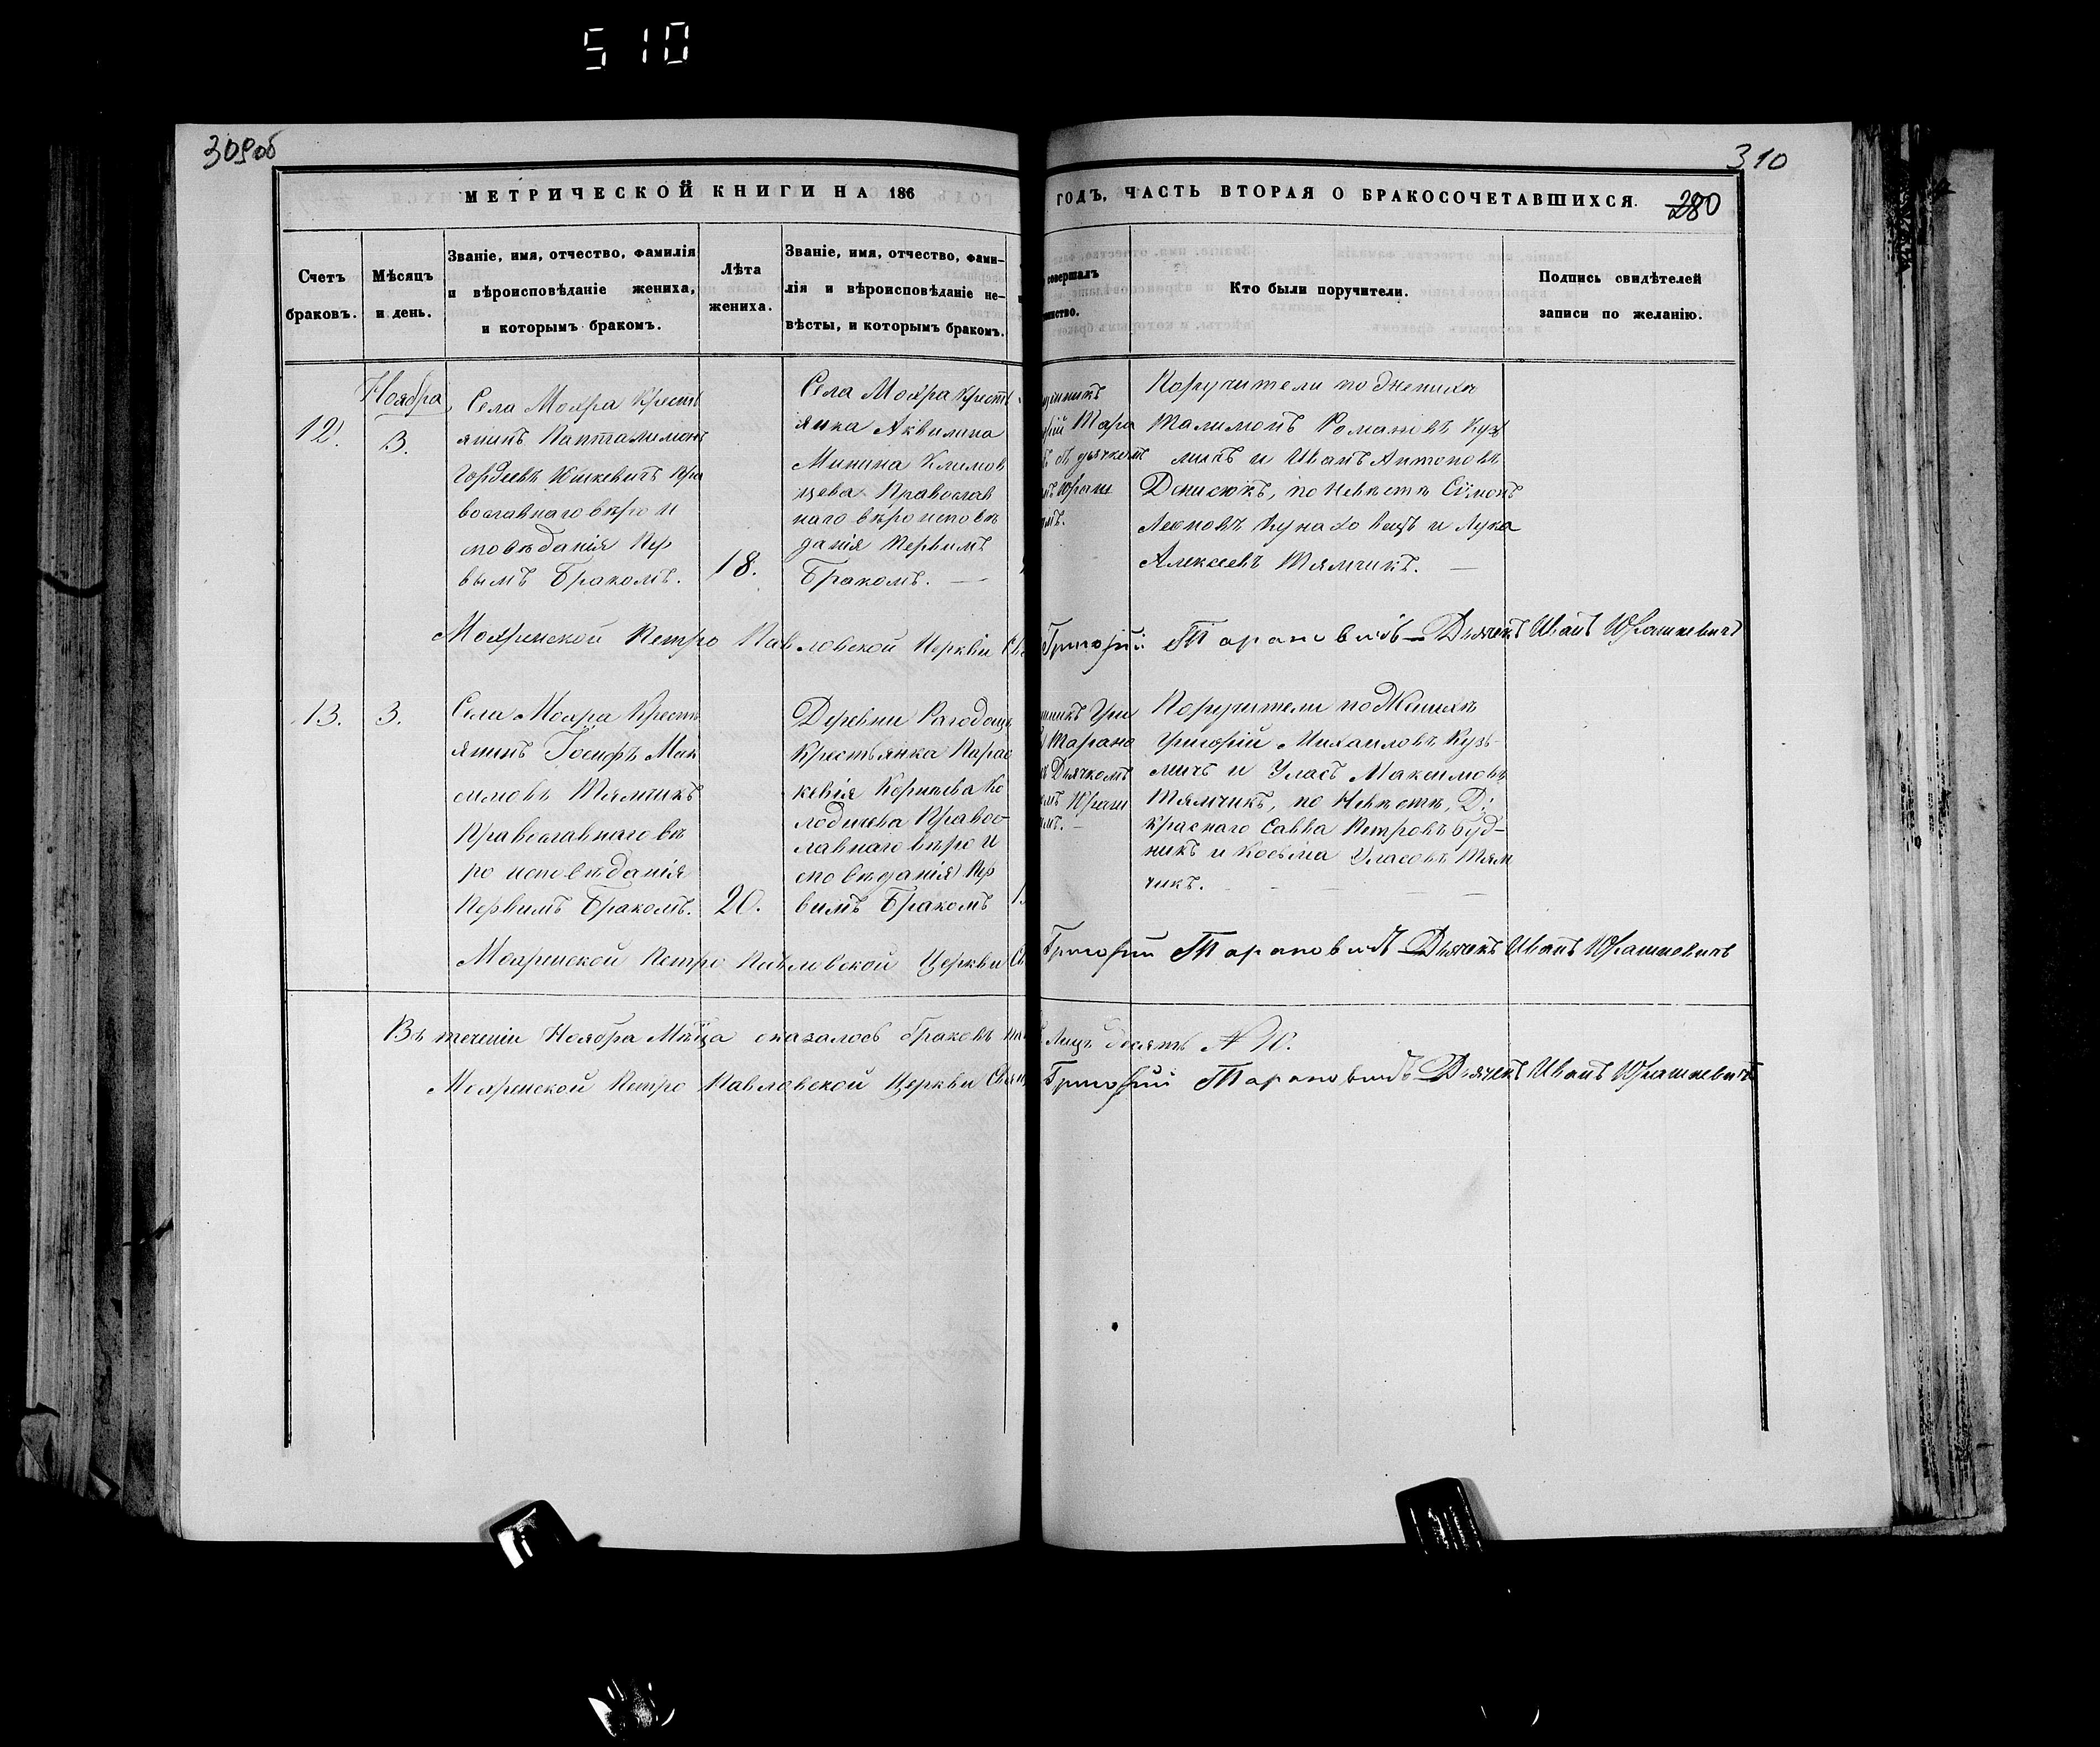 510
309об
310
МЕТРИЧЕСКОЙ КНИГИ НА 186
ГОДЪ, ЧАСТЬ ВТОРАЯ О БРАКОСОЧЕТАВШИХСЯ.
280
Счетъ
браковъ.
Мѣсяцъ
и день.
Званіе, имя, отчество, фамилія
и вѣроисповѣданіе жениха,
и которымъ бракомъ.
Лѣта
жениха.
Званіе, имя, отчество, фами-
лія и вѣроисповѣданіе не-
вѣсты, и которымъ бракомъ.
совершалъ
инство.
Кто были поручители.
Подпись свидѣтелей
записи по желанію.
12.
Ноября
3.
Села Мохра Кресть
янинъ Панталимонъ
Гордѣевъ Юшкевичъ Пра
вославнаго вѣро и
сповѣданія Пер
вымъ Бракомъ.
18.
Села Мохра Кресть
янка Акилина
Минина Климов
цева Православ
наго вѣро исповѣ
данія Первымъ
Бракомъ. —
щеникъ
рій Тара
съ дьячкомъ
Юраш
Поручители по женихѣ
Талимонъ Романовъ Куз
мичъ и Иванъ Антоновъ
Денисюкъ, по Невѣстѣ Сѵмонъ
Леоновъ Кунаховецъ и Лука
Алексѣевъ Тямчикъ. —
Мохринской Петро Павловской Церкви Свя
Григорій Тарановичъ — Дьячекъ Иванъ Юрашкевичъ
13.
3.
Села Мохра Кресть
янинъ Іосифъ Мак
симовъ Тямчикъ
Православнаго вѣ
ро исповѣданія
Первымъ Бракомъ.
20.
Деревни Рагодощъ
Крестьянка Парас
кевія Корнѣева Ко
лодичева Правос-
лавнаго вѣро и
сповѣданія Пер
вымъ Бракомъ
Гри
Тарано
Дьячкомъ
Юраш
Поручители по Женихѣ
Григорій Михаиловъ Кузь-
мичъ и Уласъ Максимовъ
Тямчикъ, по Невѣстѣ, Д:
Краснаго Савва Петровъ Буд-
никъ и Косьма Уласовъ Тям
чикъ. —
Мохринской Петро Павловской Церкви Св
Григорій Тарановичъ — Дьячекъ Иванъ Юрашкевичъ
Въ теченіи Ноября Мѣсяца оказалось браковъ
Лицъ десять № 10.
Мохринской Петро Павловской Церкви Свящ
Григорій Тарановичъ — Дьячекъ Иванъ Юрашкевичъ